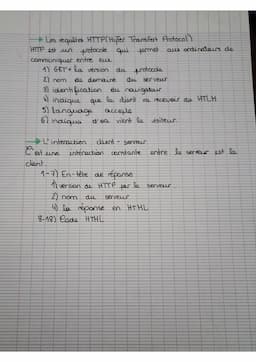 → Les requêtes HTTP (Hyper Transfert Protocol)
HTTP est un protocole qui permet aux ordinateurs de
communiquer entre eux
1) GET + la version du protocole
2) nom du domaine du serveur
3) identification du navigateur
4) indique que le client va recevoir du HTLM
5) Language accepté
6) indique d'où vient le visiteur
→ L'interaction client - serveur
C'est une intéraction constante entre le serveur est le
client.
1-7) En-tête de réponse
1) version du HTTP par le serveur
2) nom du serveur
4) la réponse en HTML
8-18) Code HTML